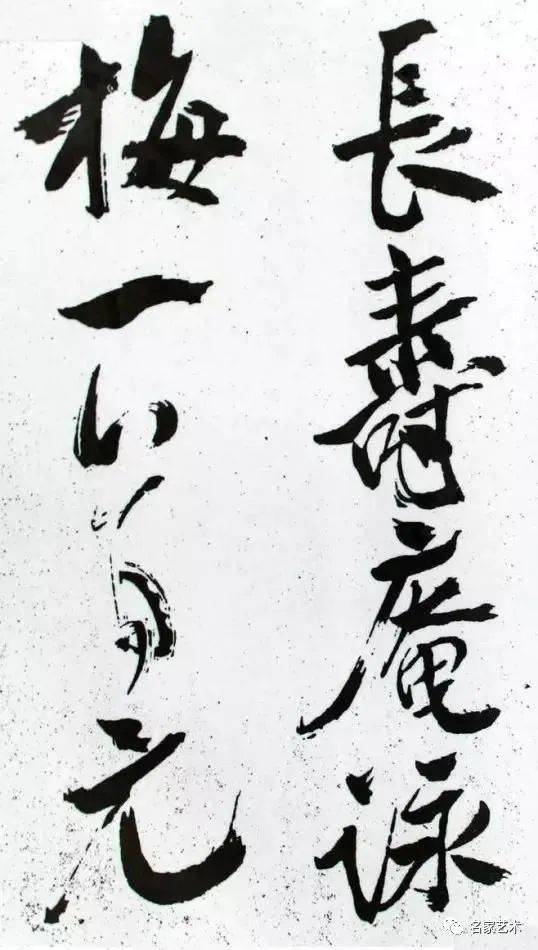 長壽庵詠
梅一以元
名家艺术